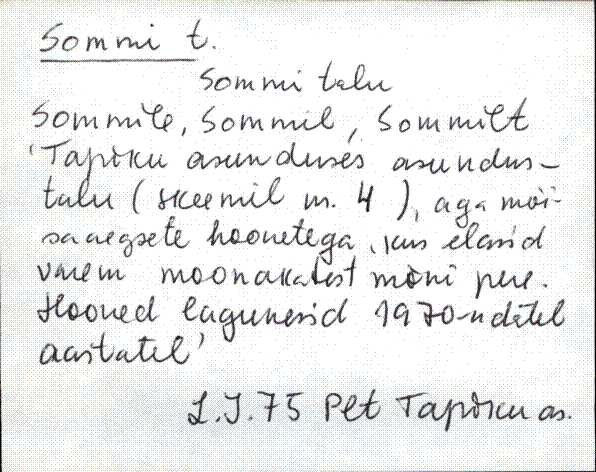 Sommi t.
Sommi talu
Sommile, Sommil, Sommilt
'Tapiku asunduses asundus-
talu (skeemil nr. 4), aga mõi-
saaegsete hoonetega, kus elasid
varem moonakatest mõni pere.
Hooned lagunesid 1970-ndatel
aastatel'
L.J. 75 Plt Tapiku as.